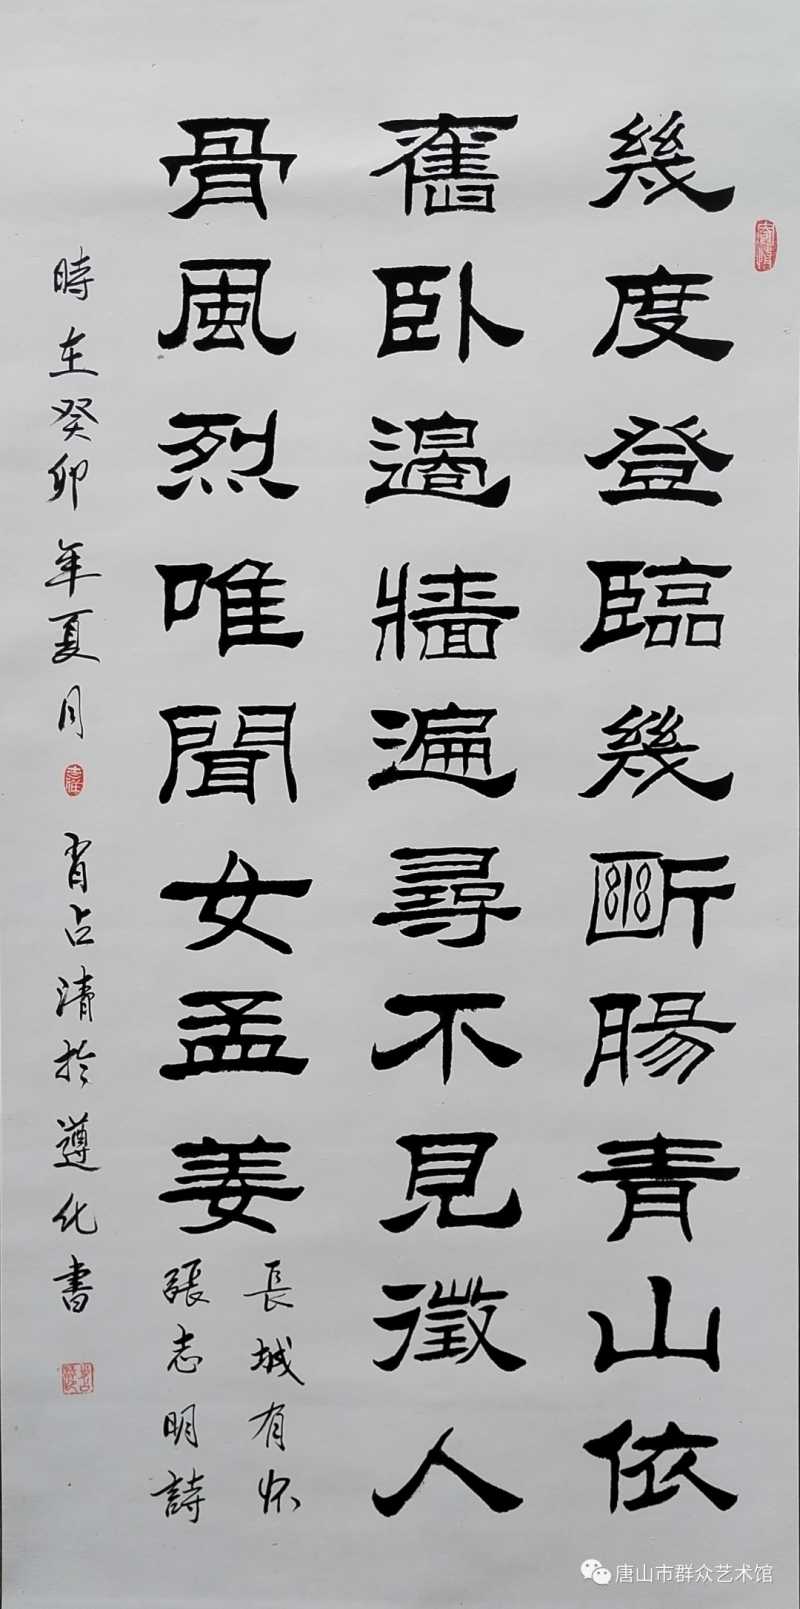 幾度登臨幾斷腸青山依
舊卧邉牆遍尋不見徵人
骨風烈唯聞女孟姜
長城有怀
張志明詩
時在癸卯年夏月
肖占清於遵化書
唐山市群众艺术馆